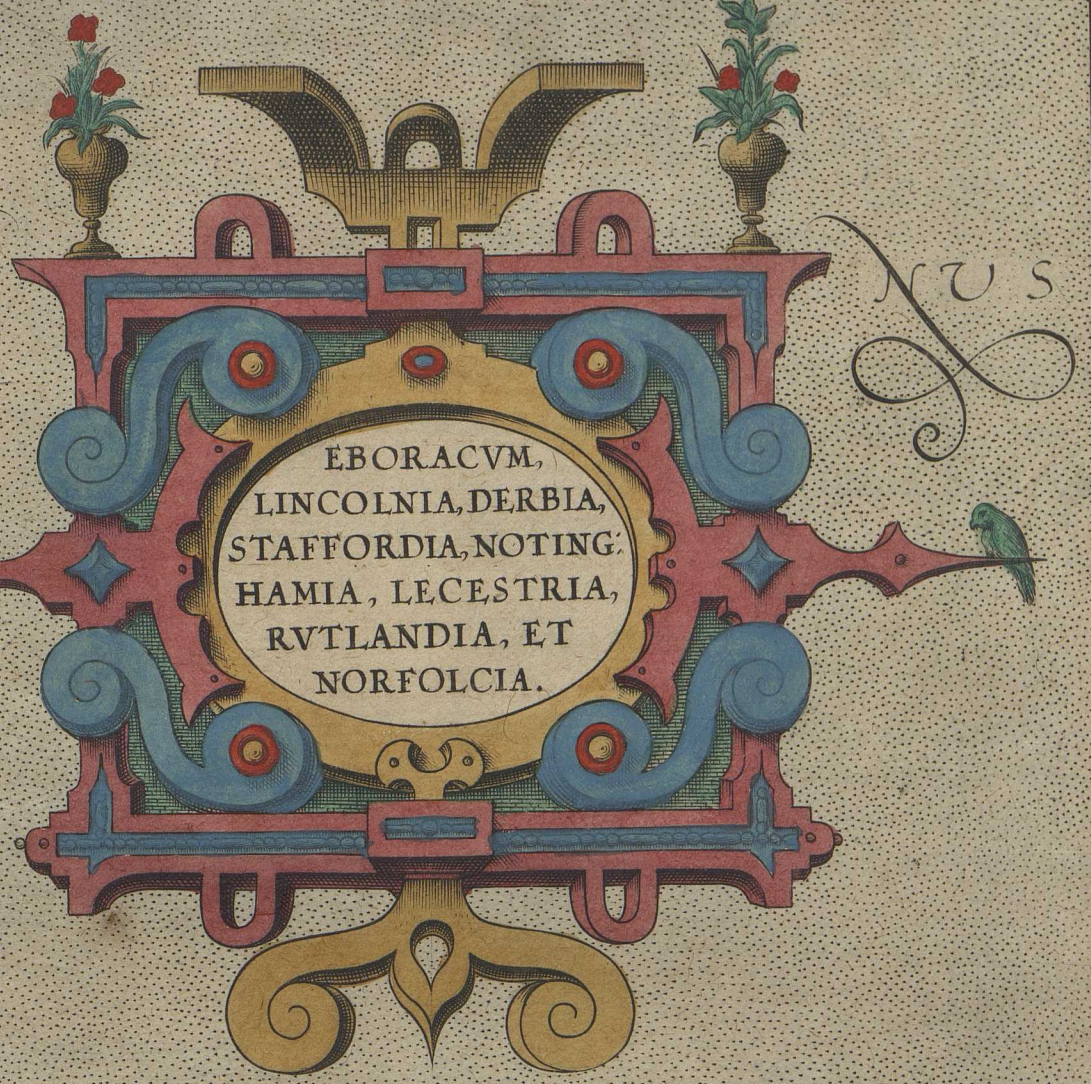 EBORACVM,
LINCOLNIA, DERBIA,
STAFFORDIA, NOTING:
HAMIA, LECESTRIA,
RVTLANDIA, ET
NORFOLCIA.
NUS